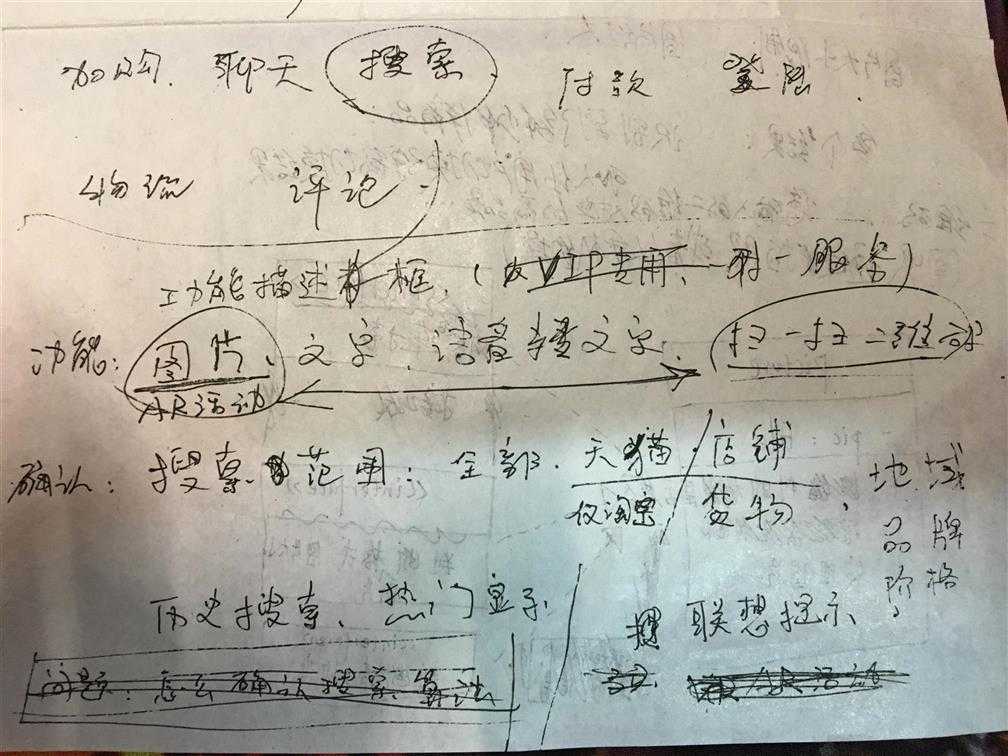 聊天 搜索 付款 登陆
物流 评论
功能描述框.(VIP专用、对一服务)
功能: 图片、文字、语音搜文字、扫一扫二维码
AR活动
确认: 搜索 范围: 全部、天猫/店铺
仅淘宝/货物、地域
品牌
价格
历史搜索、热门显示
联想提示
问题: 怎么确认搜索算法
AR活动